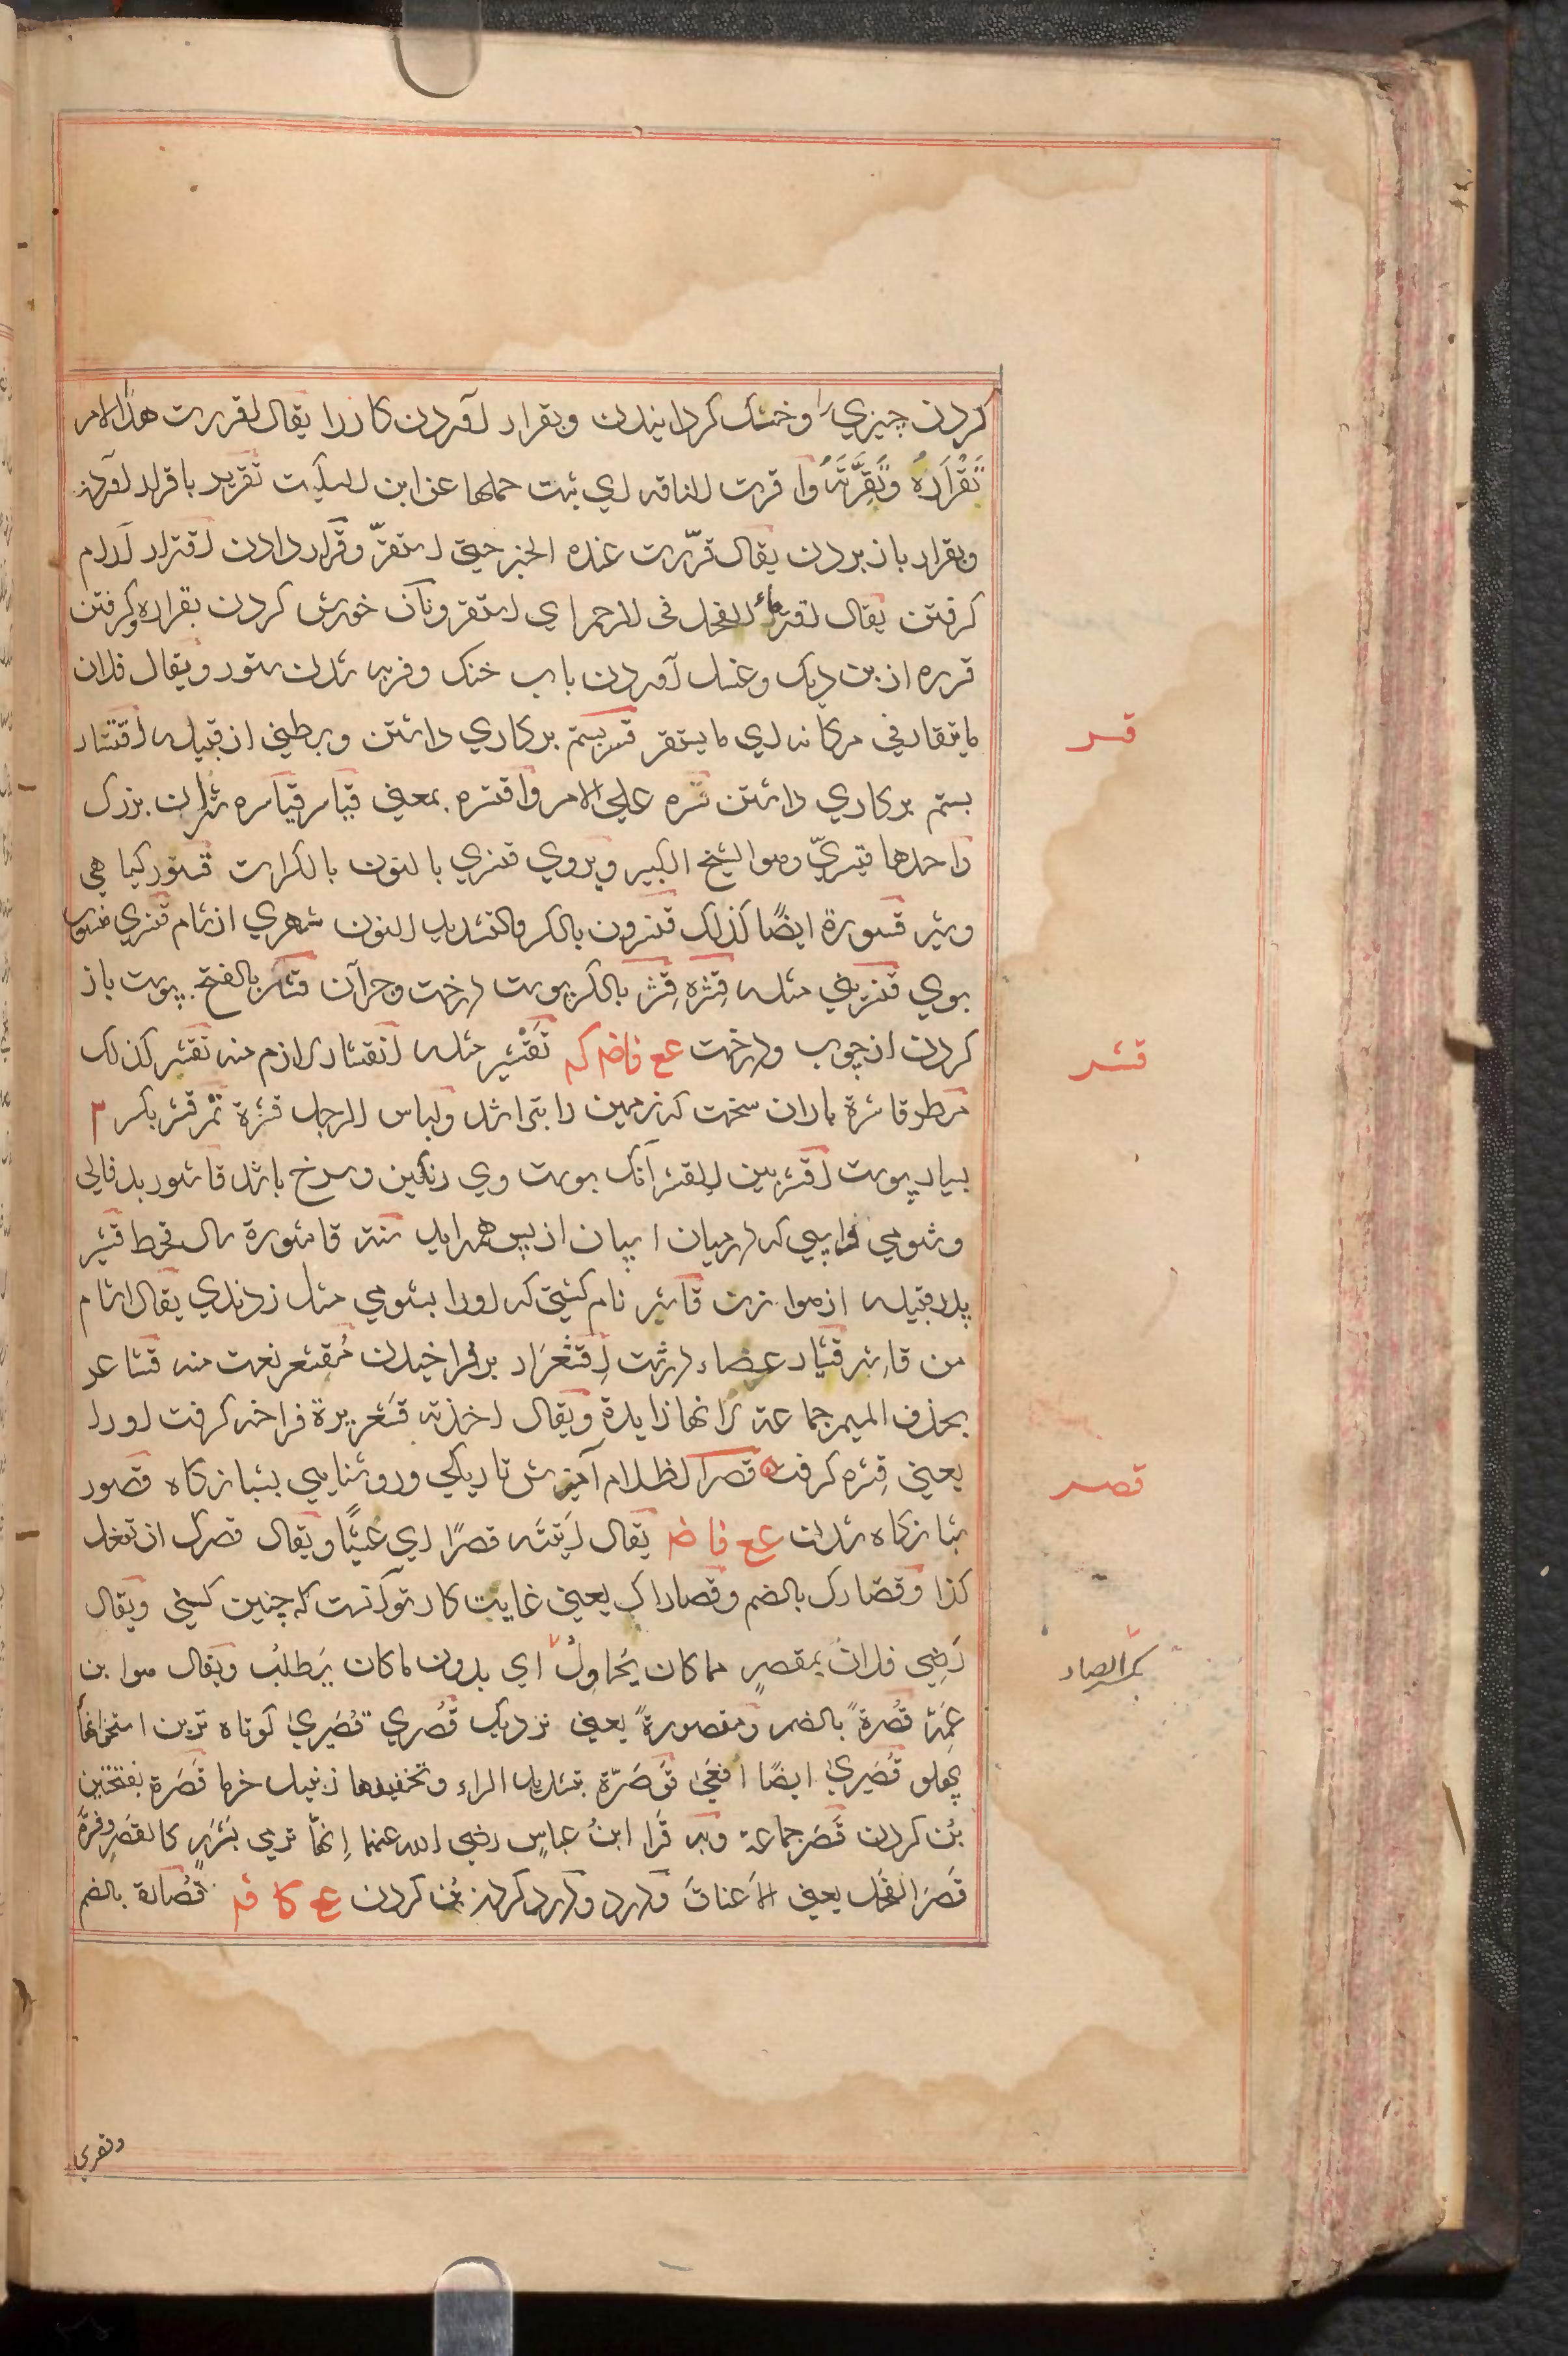 کردن چیزیرا وخشک کردانیدن وبقرار آوردن کاررا یقال اقررت هذا الامر
تَقْرَارَهُ وتَقِرَّتَهُ واقرت الناقه ای ثبت حملها عن ابن السکیت تقریر باقرار آوردن
وبقرار باز بردن یقال قرّرت عنده الخبر حتی استقرّ وقرار دادن اقترار آرام
کرفتن یقال اقتر ماء الفحل فی الرحم ای استقر ونان خورش کردن بقراره وکرفتن
قرره از بن دیک وغسل آوردن باب خنک وفربه شدن ستور ویقال فلان
مایتقار فی مکانه ای ما یستقر قسر بستم بر کاری داشتن وبطنی از قبیله اقتسار
بستم بر کاری داشتن قسره علی الامر واقتسره بمعنی قیاسر قیاسره شتران بزرک
واحدها قیسریّ وهو الشیخ الکبیر ویروی قنسری بالنون بالکرات قسور کیاهی
وشیر قسورة ایضًا کذلک قنسرون بالکسر والتشدید النون شهری از شام قنسری منسوب
بوی قنسرینی مثله قِشره قِشر بالکسر پوست درخت وجزآن قشر بالفتح پوست باز
کردن از چوب ودرخت عع فاضم کم تَقْشیر مثله انقشار لازم منه تقشر کذلک
مطر قاشرة باران سخت که زمین را بتراشد ولباس الرجل قشرة تَمْر قشر بکسر ۲
بسیار پوست اقشر بین القشر آنک پوست وی رنکین وسرخ باشد قاشور بدفالی
وشومی واسپی که درمیان اسپان از پس همه آید سنة قاشورة سال قحط قشیر
پدر قبیله از هوازن قاشر نام کشنی که اورا بشومی مثل زدندی یقال اشام
من قاشر قشار عصاء درشت اِقْشَعْرَار برفراخیدن مُقشعر نعت منه قشاعر
بحذف المیم جماعة لانها زایدة ویقال اخذته قشعریرة فراخه کرفت اورا
یعنی قِشره کرفت قصر الظلام آمیزش تاریکی وروشنایی بشبانکاه قصور
شبانکاه شدن عع فا ضم یقال اَتیته قصرًا ای عَشِیًّا ویقال قصرک ان تفعل
کذا وقصارک بالضم وقصاراک یعنی غایت کار تو آنست که چنین کنی ویقال
رَضِی فلانٌ بمقصرٍ مما کان یُحاوِلُ ای بدون ما کان یَطلبُ ویقال هو ابن
عَمِّه قُصْرةً بالضم ومقصورةً یعنی نزدیک قُصْری قُصَیری کوتاه ترین استخوانهاء
پهلو قُصَیری ایضًا افعی قَوصَرّة بتشدید الراء وتخفیفها زنبیل خرما قَصَرة بفتحتین
بُن کردن قَصَر جماعة وبه قَرا ابنُ عباسٍ رضی الله عنهما اِنها ترمی بشَررٍ کالقَصَر وفرّهُ
قَصَر النخل یعنی الاَعناقَ ودرد ودرد کردن بُن کردن ع کا فم قُصَارة بالضم
قسر
قشر
قصر
بکسر الصاد